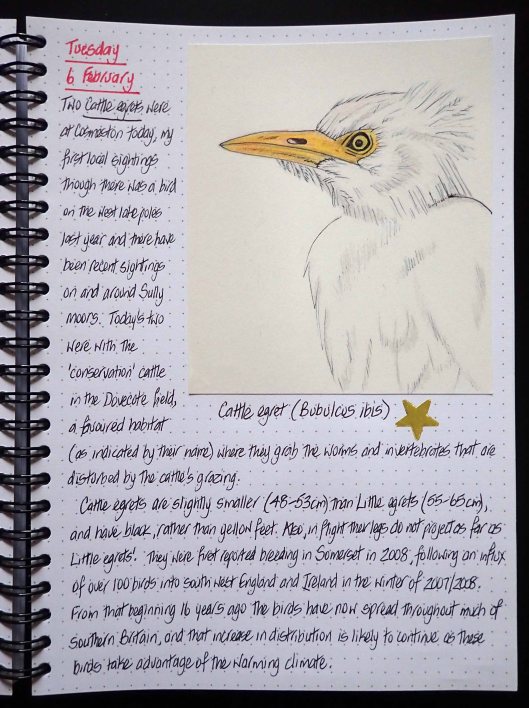 Tuesday
6 February
Two Cattle egrets were
at Cosmeston today, my
first local sightings
though there was a bird
on the west lake poles
last year and there have
been recent sightings
on and around Sully
moors. Today's two
were with the
'conservation' cattle
in the Dovecote field,
a favoured habitat
Cattle egret (Bubulcus ibis)
(as indicated by their name) where they grab the worms and invertebrates that are
disturbed by the cattle's grazing.
Cattle egrets are slightly smaller (48-53cm) than Little egrets (55-65cm),
and have black, rather than yellow feet. Also, in flight their legs do not project as far as
Little egrets'. They were first reported breeding in Somerset in 2008, following an influx
of over 100 birds into South West England and Ireland in the winter of 2007/2008.
From that beginning 16 years ago the birds have now spread throughout much of
Southern Britain, and that increase in distribution is likely to continue as these
birds take advantage of the warming climate.